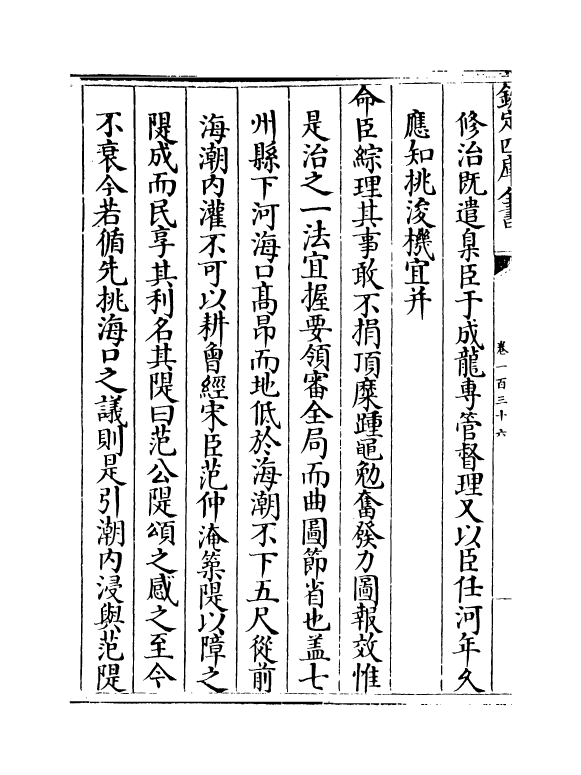 欽定四庫全書
卷一百三十六
修治既遣臬臣于成龍専管督理又以臣任河年久
應知挑浚機宜并
命臣綜理其事敢不捐頂糜踵黽勉奮發力圖報效惟
是治之一法宜握要領審全局而曲圖節省也盖七
州縣下河海口髙昂而地低於海潮不下五尺從前
海潮内灌不可以耕曾經宋臣范仲淹築隄以障之
隄成而民享其利名其隄曰范公隄頌之感之至今
不衰今若循先挑海口之議則是引潮内浸與范隄